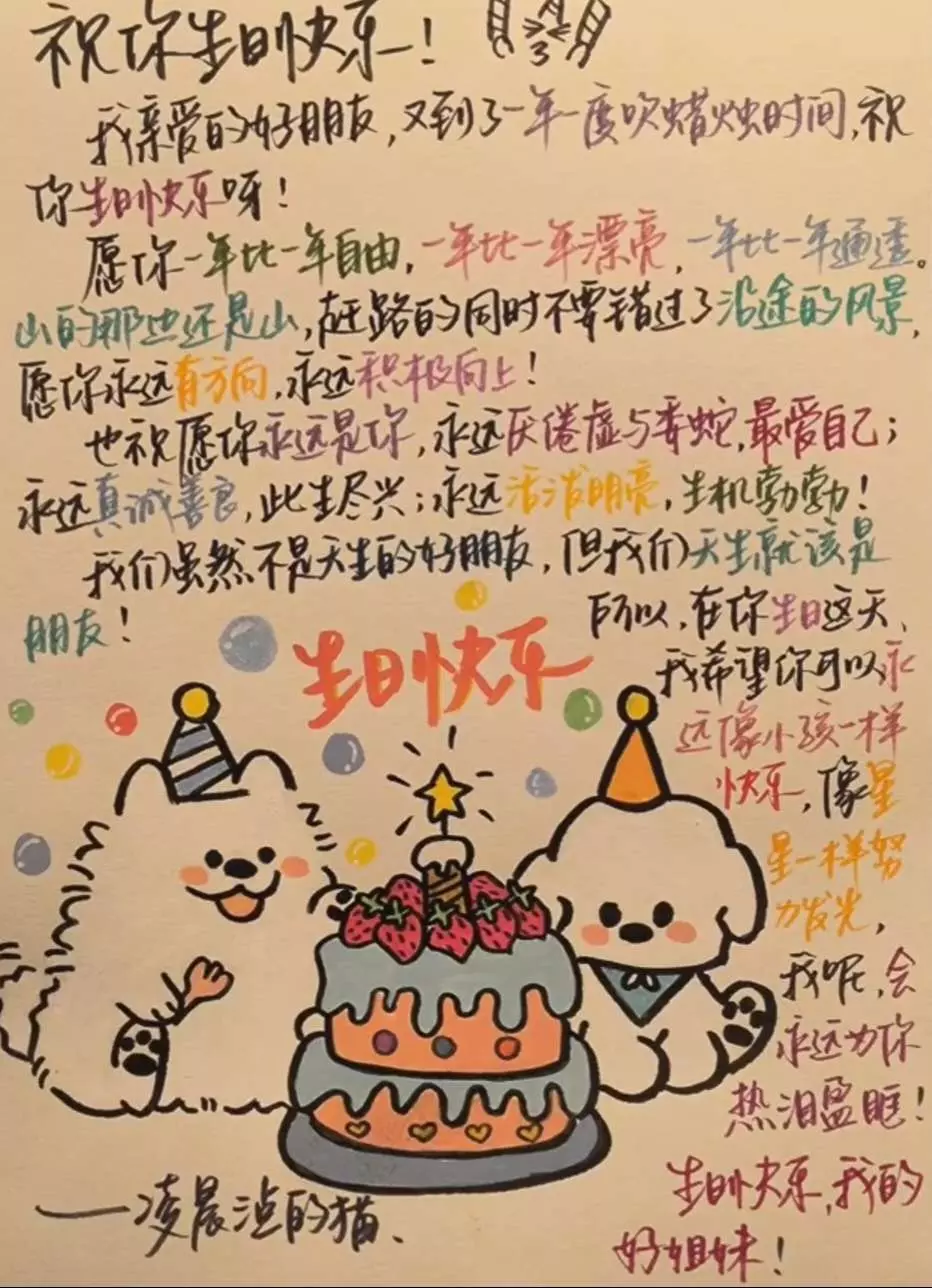 祝你生日快乐!
我亲爱的好朋友,又到了一年一度吹蜡烛时间,祝
你生日快乐呀!
愿你一年比一年自由,一年比一年漂亮,一年比一年通透。
山的那边还是山,赶路的同时不要错过了沿途的风景,
愿你永远有方向,永远积极向上!
也祝愿你永远是你,永远厌倦虚与委蛇,最爱自己;
永远真诚善良,此生尽兴;永远活泼明亮,生机勃勃!
我们虽然不是天生的好朋友,但我们天生就该是
朋友!
所以,在你生日这天、
我希望你可以永
远像小孩一样
快乐,像星
星一样努
力发光,
我呢,会
永远为你
热泪盈眶!
生日快乐,我的
好姐妹!
生日快乐
——凌晨 的猫、